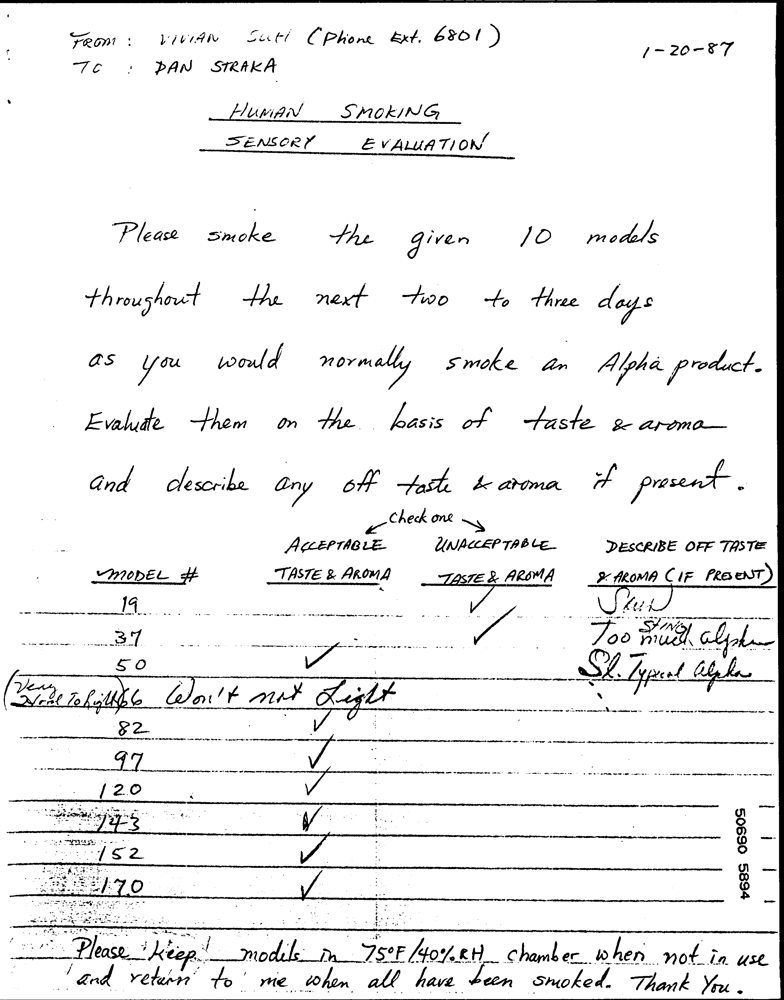 FROM : VIVIAN (Phone Ext. 6801)
1-20-87
TO : DAN STRAKA
HUMAN SMOKING
SENSORY EVALUATION
Please smoke the given 10 models
throughout the next two to three days
as you would normally smoke an Alpha product.
Evaluate them on the basis of taste & aroma
and describe any off taste & aroma if present.
Check one
ACCEPTABLE UNACCEPTABLE DESCRIBE OFF TASTE
MODEL # TASTE & AROMA TASTE & AROMA & AROMA (IF PRESENT)
19 ✓
37 ✓ Too much STING alpha
50 ✓ Sl. Typical alpha
(Very Hard To Light) 66 Won't not Light
82 ✓
97 ✓
120 ✓
143 ✓
152 ✓
170 ✓
50690 5894
Please keep models in 75°F/40% RH chamber when not in use
and return to me when all have been smoked. Thank You.